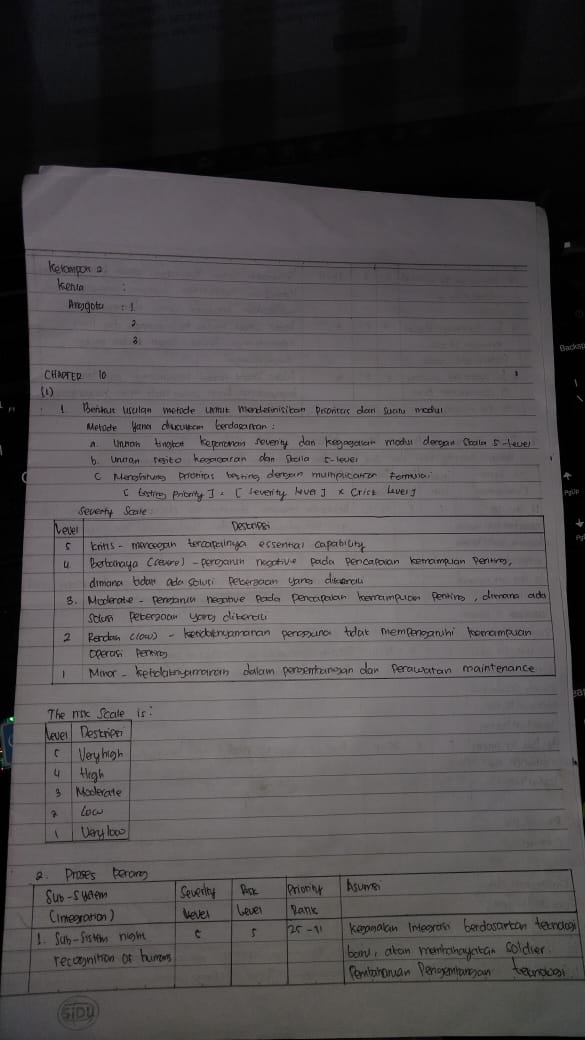 Kelompok 2
Ketua :
Anggota : 1.
2
3.
CHAPTER 10
(1)
1. Berikut usulan metode untuk mendefinisikan Prioritas dari suatu modul.
Metode yang diusulkan berdasarkan :
a. tingkat severity dan kegagalan modul dengan skala 5-level
b. resiko kegagalan dan skala 5-level
c Menghitung Prioritas testing dengan multiplication Formula:
[ testing Priority ] = [ Severity level ] x [risk level]
Severity Scale:
Level Deskripsi
5 kritis - mencegah tercapainya essential capability
4 Berbahaya (severe) - pengaruh negative pada Pencapaian kemampuan Penting,
dimana tidak ada solusi Pekerjaan yang diketahui
3. Moderate - pengaruh negative Pada pencapaian kemampuan penting, dimana ada
Solusi Pekerjaan yang diketahui
2 Rendah (low) - ketidaknyamanan pengguna tidak mempengaruhi kemampuan
operasi Penting
1 Minor - ketidaknyamanan dalam pengembangan dan Perawatan maintenance
The risk Scale is:
Level Deskripsi
5 Very high
4 High
3 Moderate
2 Low
1 Very low
2. Proses Perang
Sub-System Severity Risk Priority Asumsi
(Integration) Level Level Rank
1. Sub-Sistem night 5 5 25 - 11 Kegagalan Integrasi berdasarkan teknologi
recognition of humans baru, akan membahayakan soldier.
Pengembangan teknologi
SIDU